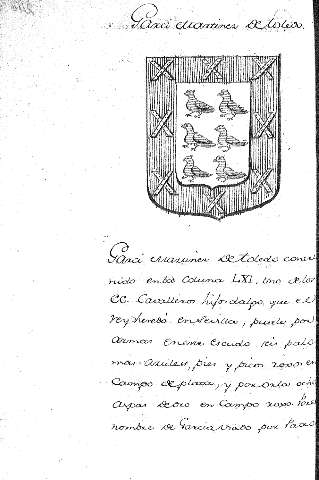 Garci Martinez De Toledo.
Garci Martinez De Toledo conte
nido en la Coluna LXI, uno de los
CC. Cavalleros hijosdalgo, que el
Rey heredó en Sevilla, puso por
Armas en este Escudo seis palo
mas Azules, pies y picos roxos en
Campo de plata, y por Orla ocho
Aspas de Oro en Campo roxo.
nombre de Garcia usado por